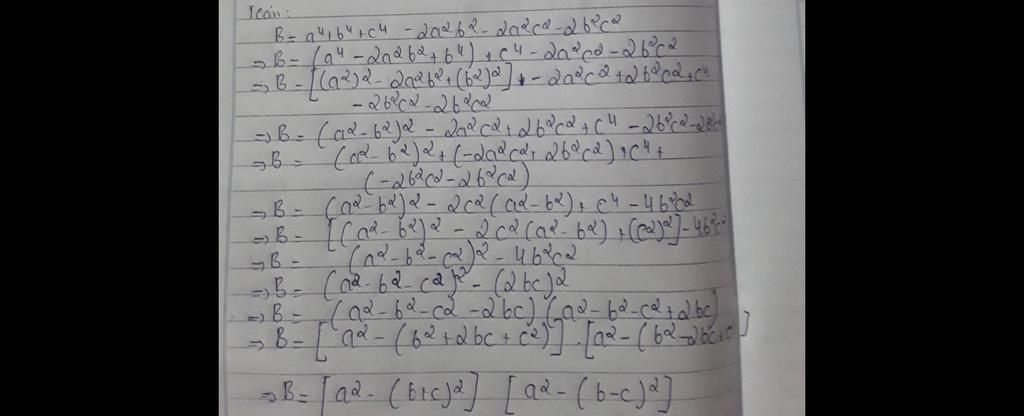 B = a⁴+b⁴+c⁴ - 2a²b² - 2a²c² - 2b²c²
⇒ B = (a⁴ - 2a²b² + b⁴) + c⁴ - 2a²c² - 2b²c²
⇒ B = [(a²)² - 2a²b² + (b²)²] - 2a²c² + 2b²c² + c⁴
- 2b²c² - 2b²c²
⇒ B = (a² - b²)² - 2a²c² + 2b²c² + c⁴ - 2b²c² - 2b²c²
⇒ B = (a² - b²)² + (-2a²c² + 2b²c²) + c⁴ +
(-2b²c² - 2b²c²)
⇒ B = (a² - b²)² - 2c²(a² - b²) + c⁴ - 4b²c²
⇒ B = [(a² - b²)² - 2c²(a² - b²) + (c²)²] - 4b²c²
⇒ B = (a² - b² - c²)² - 4b²c²
⇒ B = (a² - b² - c²)² - (2bc)²
⇒ B = (a² - b² - c² - 2bc) (a² - b² - c² + 2bc)
⇒ B = [a² - (b² + 2bc + c²)] . [a² - (b² - 2bc + c]
⇒ B = [a² - (b+c)²] [a² - (b-c)²]